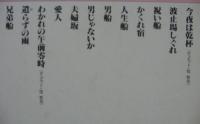 今夜は乾杯
波止場しぐれ
祝い船
かくれ宿
人生船
男船
男じゃないか
夫婦坂
愛人
わかれの午前零時
遣らずの雨
兄弟船